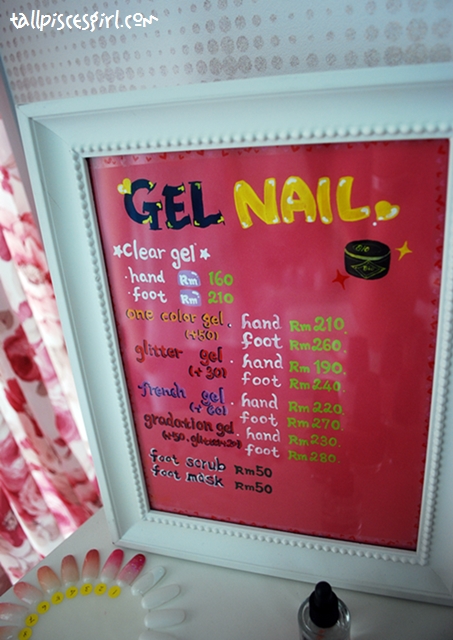 tallpiscesgirl.com
GEL NAIL
Clear gel
hand Rm 160
foot Rm 210
one color gel. hand Rm210.
(+50) foot Rm260.
glitter gel. hand Rm190.
(+30) foot Rm240.
french gel. hand Rm220.
(+60) foot Rm270.
gradation gel. hand Rm230.
foot Rm280.
foot scrub Rm50
foot mask Rm50